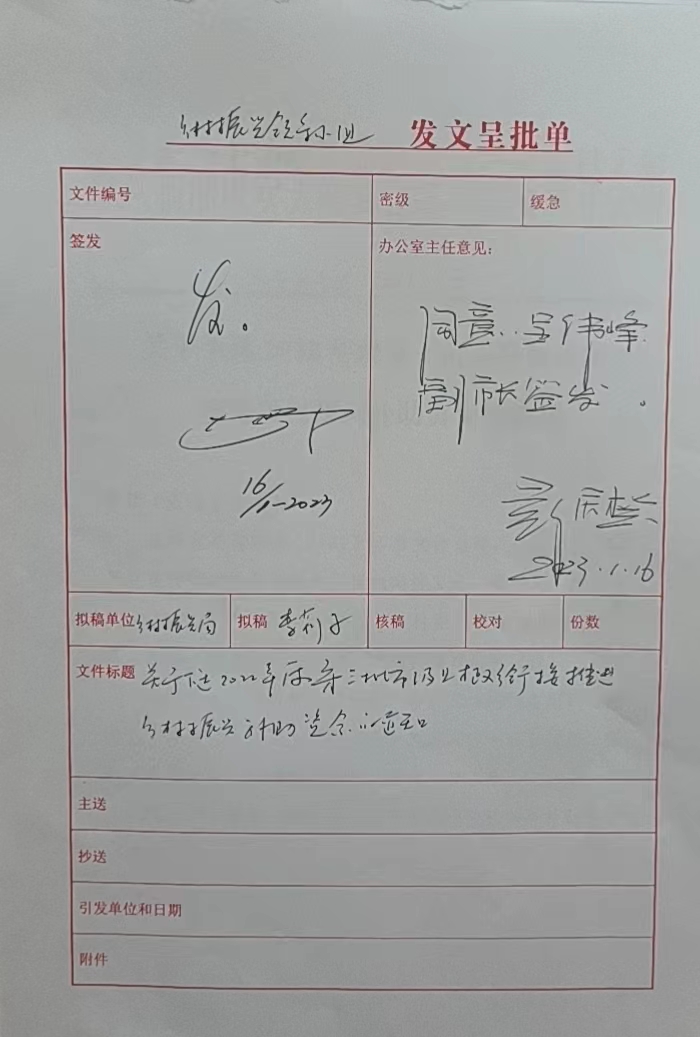 乡村振兴领导小组 发文呈批单
文件编号 密级 缓急
签发 办公室主任意见：
发。
同意.呈伟峰
副市长签发。
16/1-2023
2023.1.16
拟稿单位 乡村振兴局 拟稿 李莉子 核稿 校对 份数
文件标题 关于 2022年 市 衔接推进
乡村振兴补助资金的通知
主送
抄送
引发单位和日期
附件